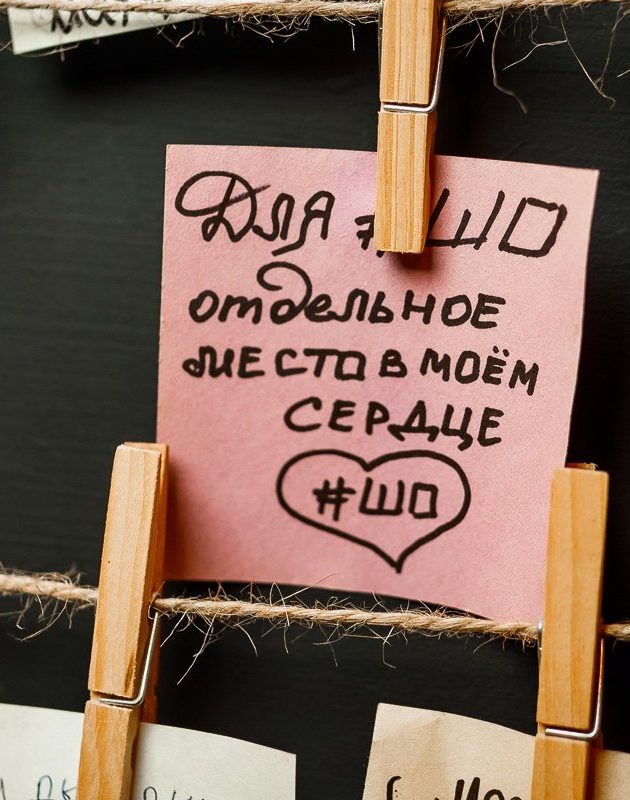 Для #ШО
отдельное
место в моём
СЕРДЦЕ
#ШО